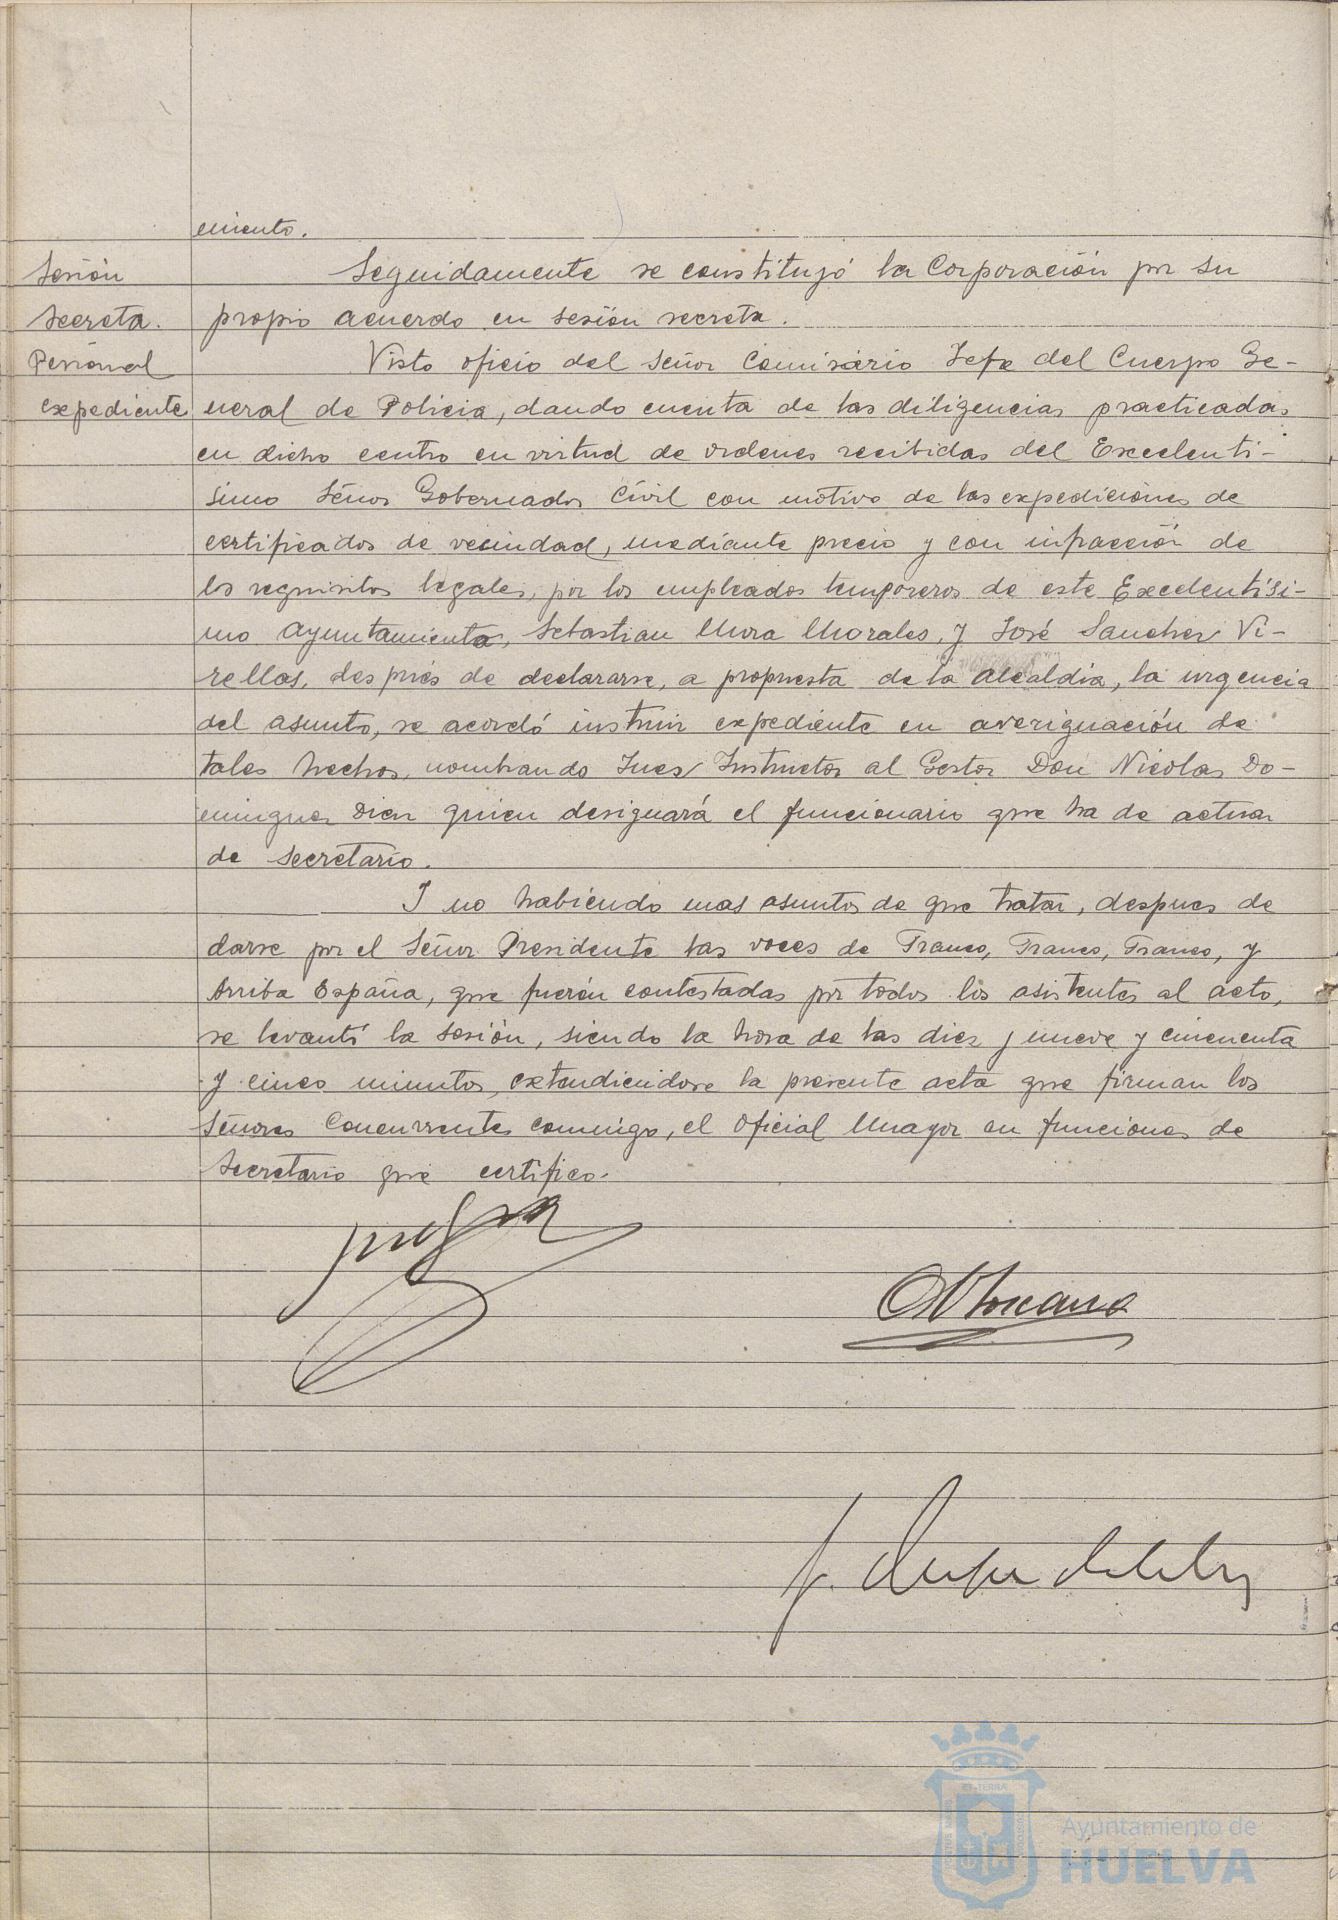 miento.
Sesión
Seguidamente se constituyó la Corporación por su
secreta.
propio acuerdo en sesión secreta.
Personal
Visto oficio del Señor Comisario Jefe del Cuerpo Ge-
expediente
neral de Policia, dando cuenta de las diligencias practicadas
en dicho centro en virtud de ordenes recibidas del Excelenti-
simo Señor Gobernador Civil con motivo de las expediciones de
certificados de vecindad, mediante precio y con infracción de
los requisitos legales, por los empleados temporeros de este Excelentísi-
mo Ayuntamiento, Sebastian Mora Morales, y José Sanchez Vi-
rellas, despues de declararse, a propuesta de la Alcaldía, la urgencia
del asunto, se acordó instruir expediente en averiguación de
tales hechos, nombrando Juez Instructor al Gestor Don Nicolas Do-
minguez Diez quien designará el funcionario que ha de actuar
de Secretario.
Y no habiendo mas asuntos de que tratar, despues de
darse por el Señor Presidente las voces de Franco, Franco, Franco, y
Arriba España, que fueron contestadas por todos los asistentes al acto,
se levantó la sesión, siendo la hora de las diez y nueve y cincuenta
y cinco minutos, extendiendose la presente acta que firman los
Señores Concurrentes conmigo, el Oficial Mayor en funciones de
Secretario que certifico.
ET TERRA
Ayuntamiento de
HUELVA